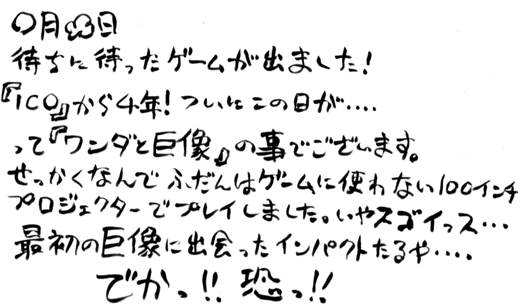 ○月××日
待ちに待ったゲームが出ました!
『ICO』から4年!ついにこの日が‥‥
って『ワンダと巨像』の事でございます。
せっかくなんでふだんはゲームに使わない100インチ
プロジェクターでプレイしました。いやスゴイっス…
最初の巨像に出会ったインパクトたるや‥‥
でかっ!!恐っ!!